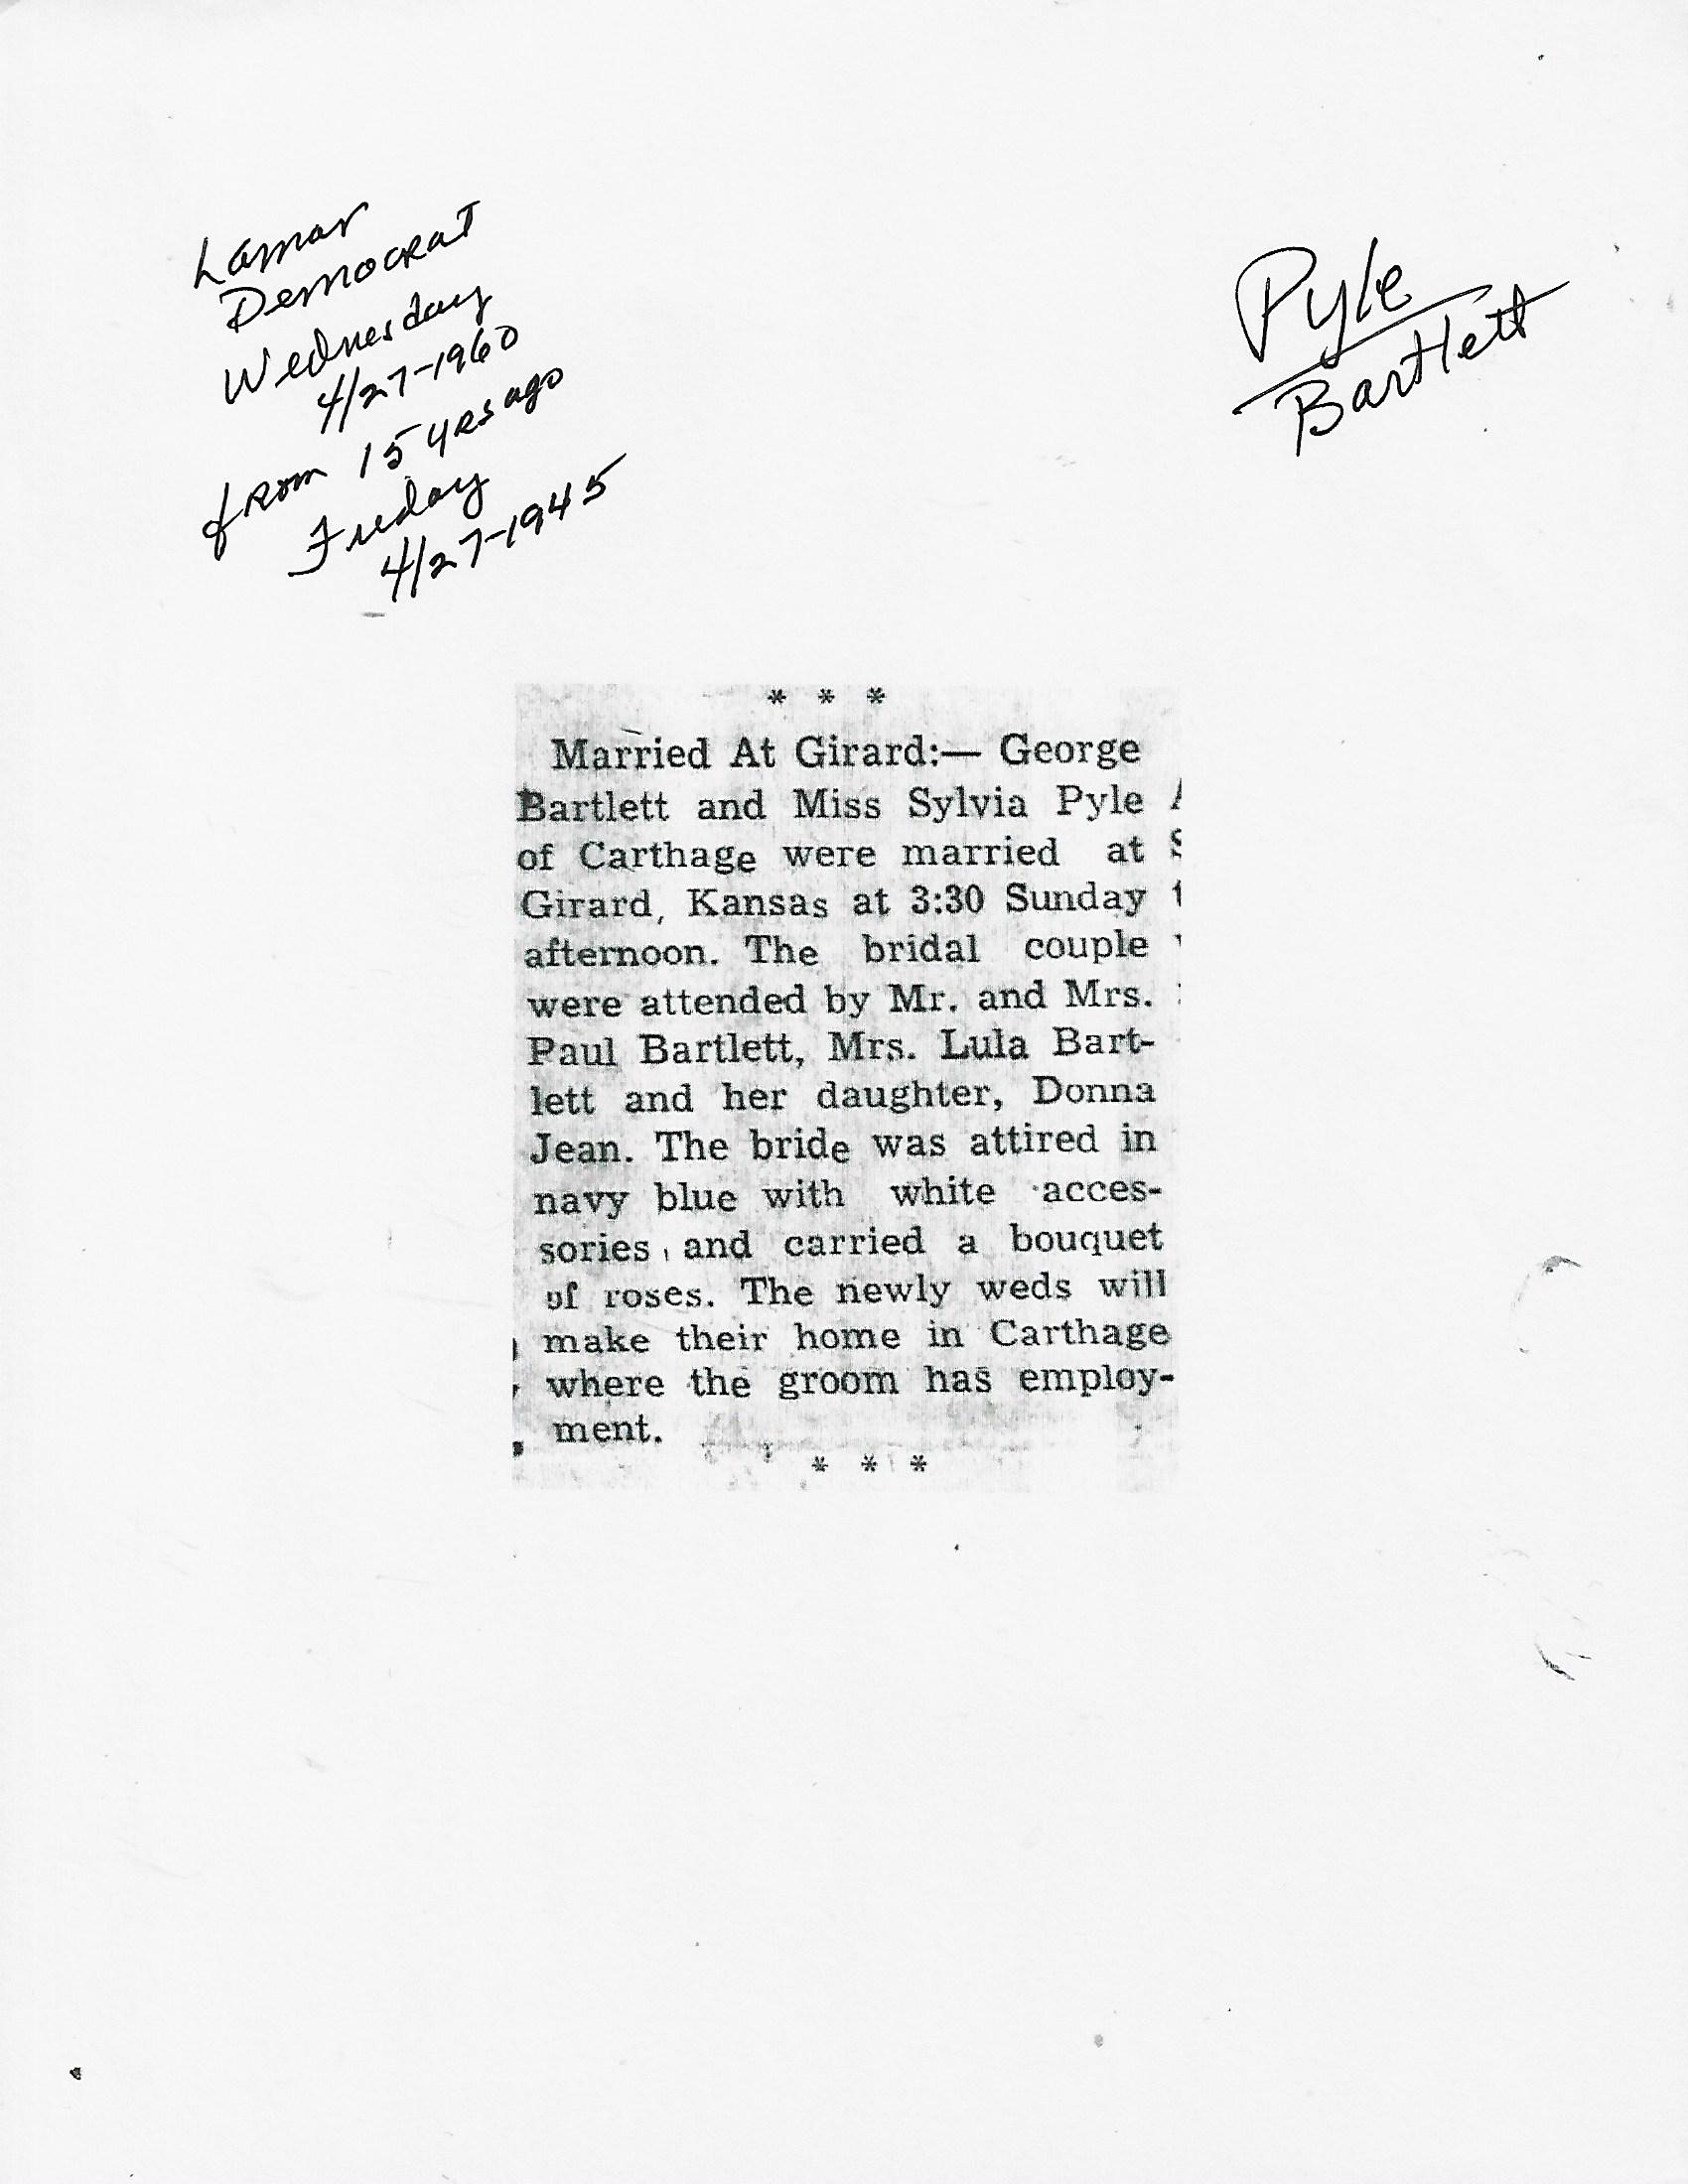 Lamar
Democrat
Wednesday
4/27-1960
from 15 yrs ago
Friday
4/27-1945
Pyle
Bartlett
* * *
Married At Girard:— George
Bartlett and Miss Sylvia Pyle
of Carthage were married at
Girard, Kansas at 3:30 Sunday
afternoon. The bridal couple
were attended by Mr. and Mrs.
Paul Bartlett, Mrs. Lula Bart-
lett and her daughter, Donna
Jean. The bride was attired in
navy blue with white acces-
sories and carried a bouquet
of roses. The newly weds will
make their home in Carthage
where the groom has employ-
ment.
* * *